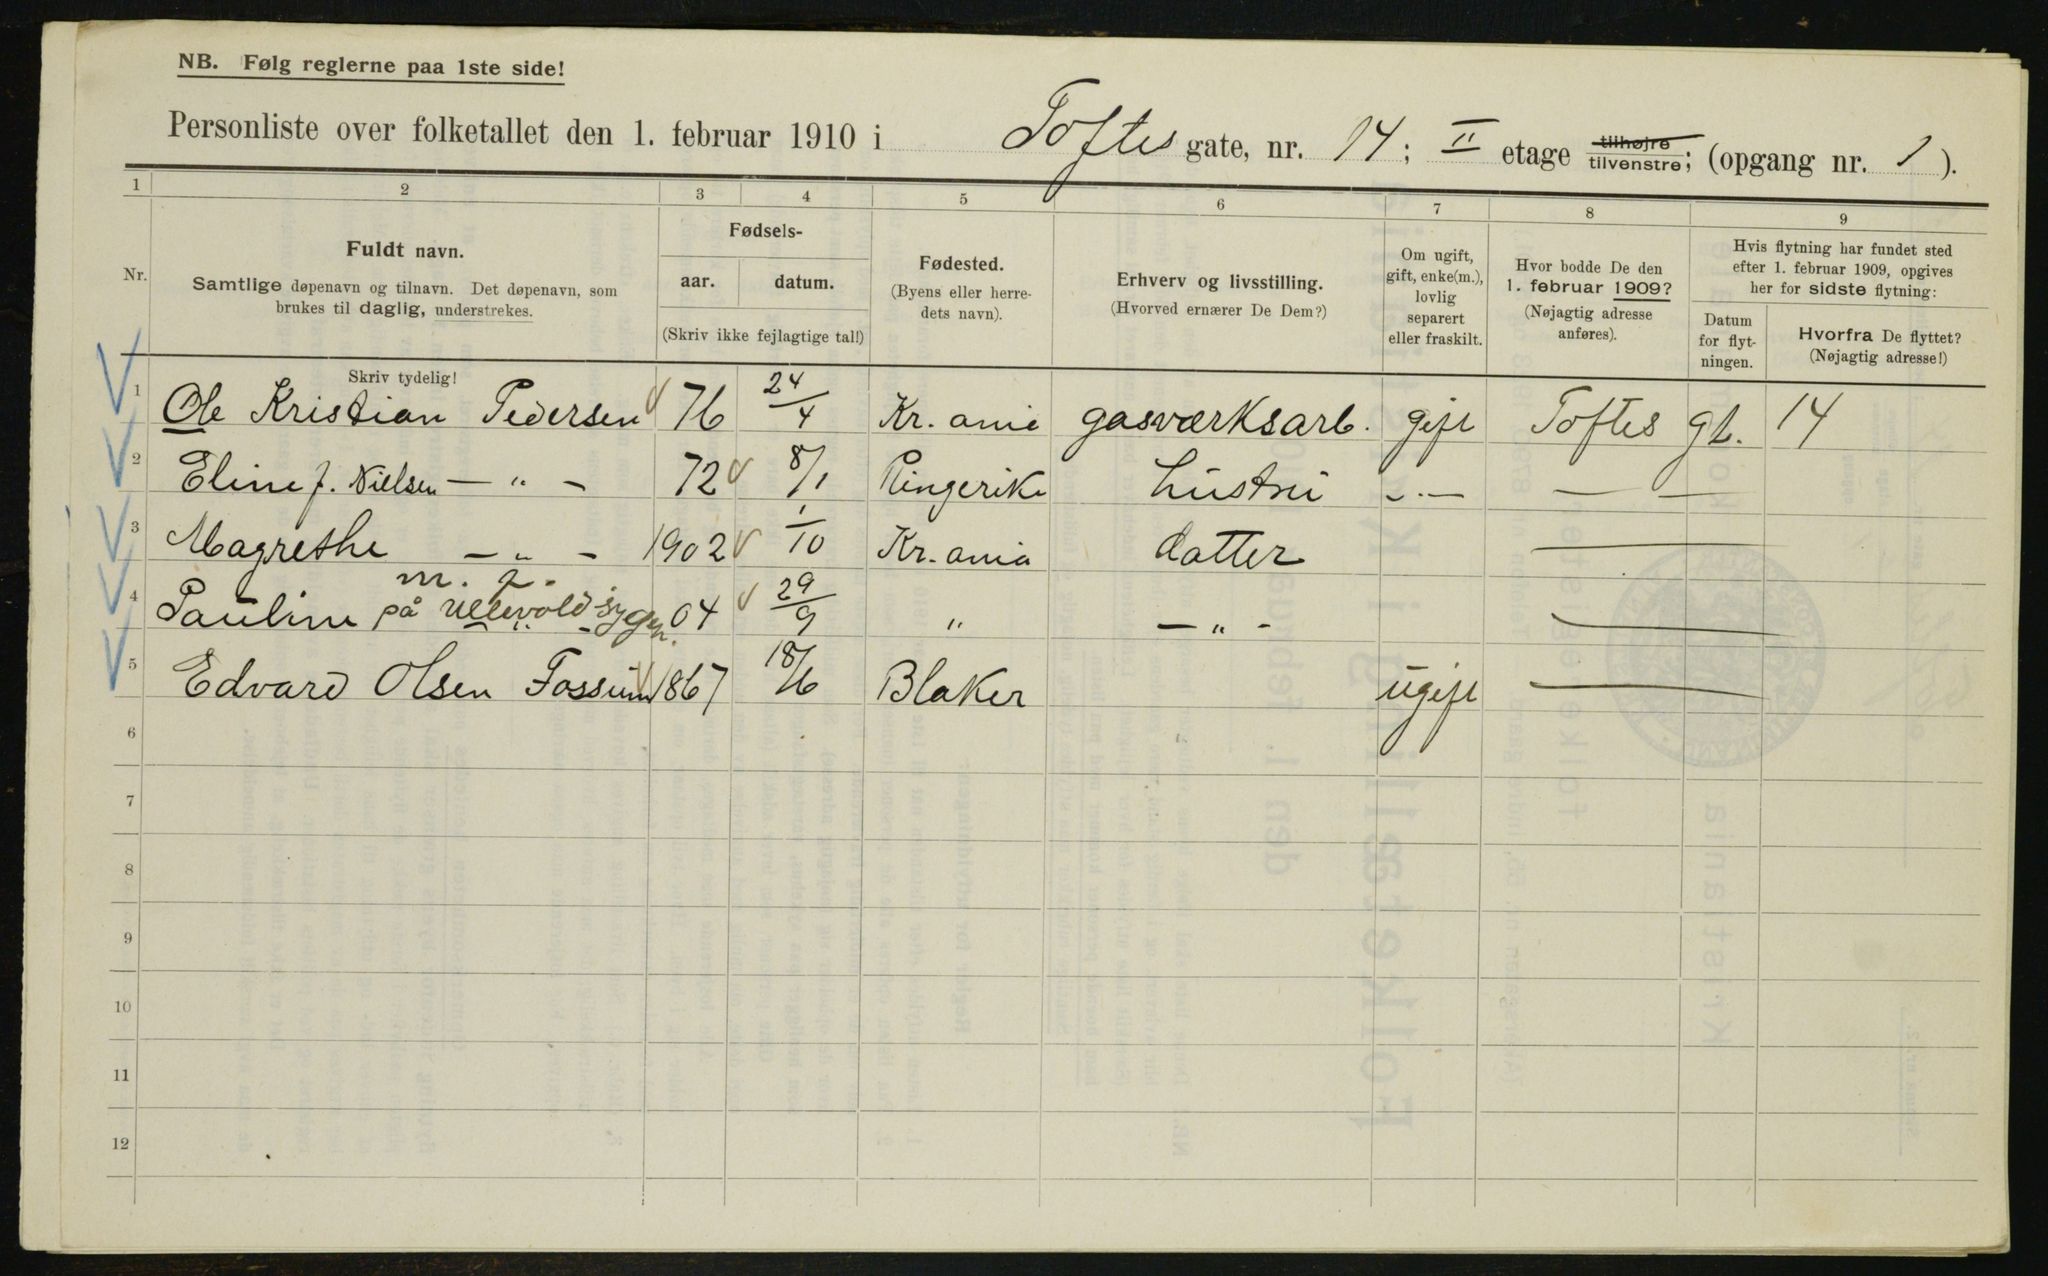 NB. Følg reglerne paa 1ste side!
Personliste over folketallet den 1. februar 1910 i Toftes gate, nr. 14; II etage tilhøjre tilvenstre; (opgang nr. 1).
1 2 3 4 5 6 7 8 9
Nr.
Fuldt navn.
Samtlige døpenavn og tilnavn. Det døpenavn, som
brukes til daglig, understrekes.
Skriv tydelig!
Fødsels-
aar. datum.
(Skriv ikke fejlagtige tal!)
Fødested.
(Byens eller herre-
dets navn).
Erhverv og livsstilling.
(Hvorved ernærer De Dem?)
Om ugift,
gift, enke(m.),
lovlig
separert
eller fraskilt.
Hvor bodde De den
1. februar 1909?
(Nøjagtig adresse
anføres).
Hvis flytning har fundet sted
efter 1. februar 1909, opgives
her for sidste flytning:
Datum
for flyt-
ningen.
Hvorfra De flyttet?
(Nøjagtig adresse!)
1 Ole Kristian Pedersen 76 24/4 Kr.ania gasværksarb. gift Toftes gt. 14
2 Eline f. Nielsen — " — 72 8/1 Ringerike hustru — " — — —
3 Magrethe — " — 1902 1/10 Kr.ania datter —
m. 2.
4 Pauline på Ullevold sygeh. 04 29/9 " — " — —
5 Edvard Olsen Fossum 1867 18/6 Blaker ugift —
6
7
8
9
10
11
12